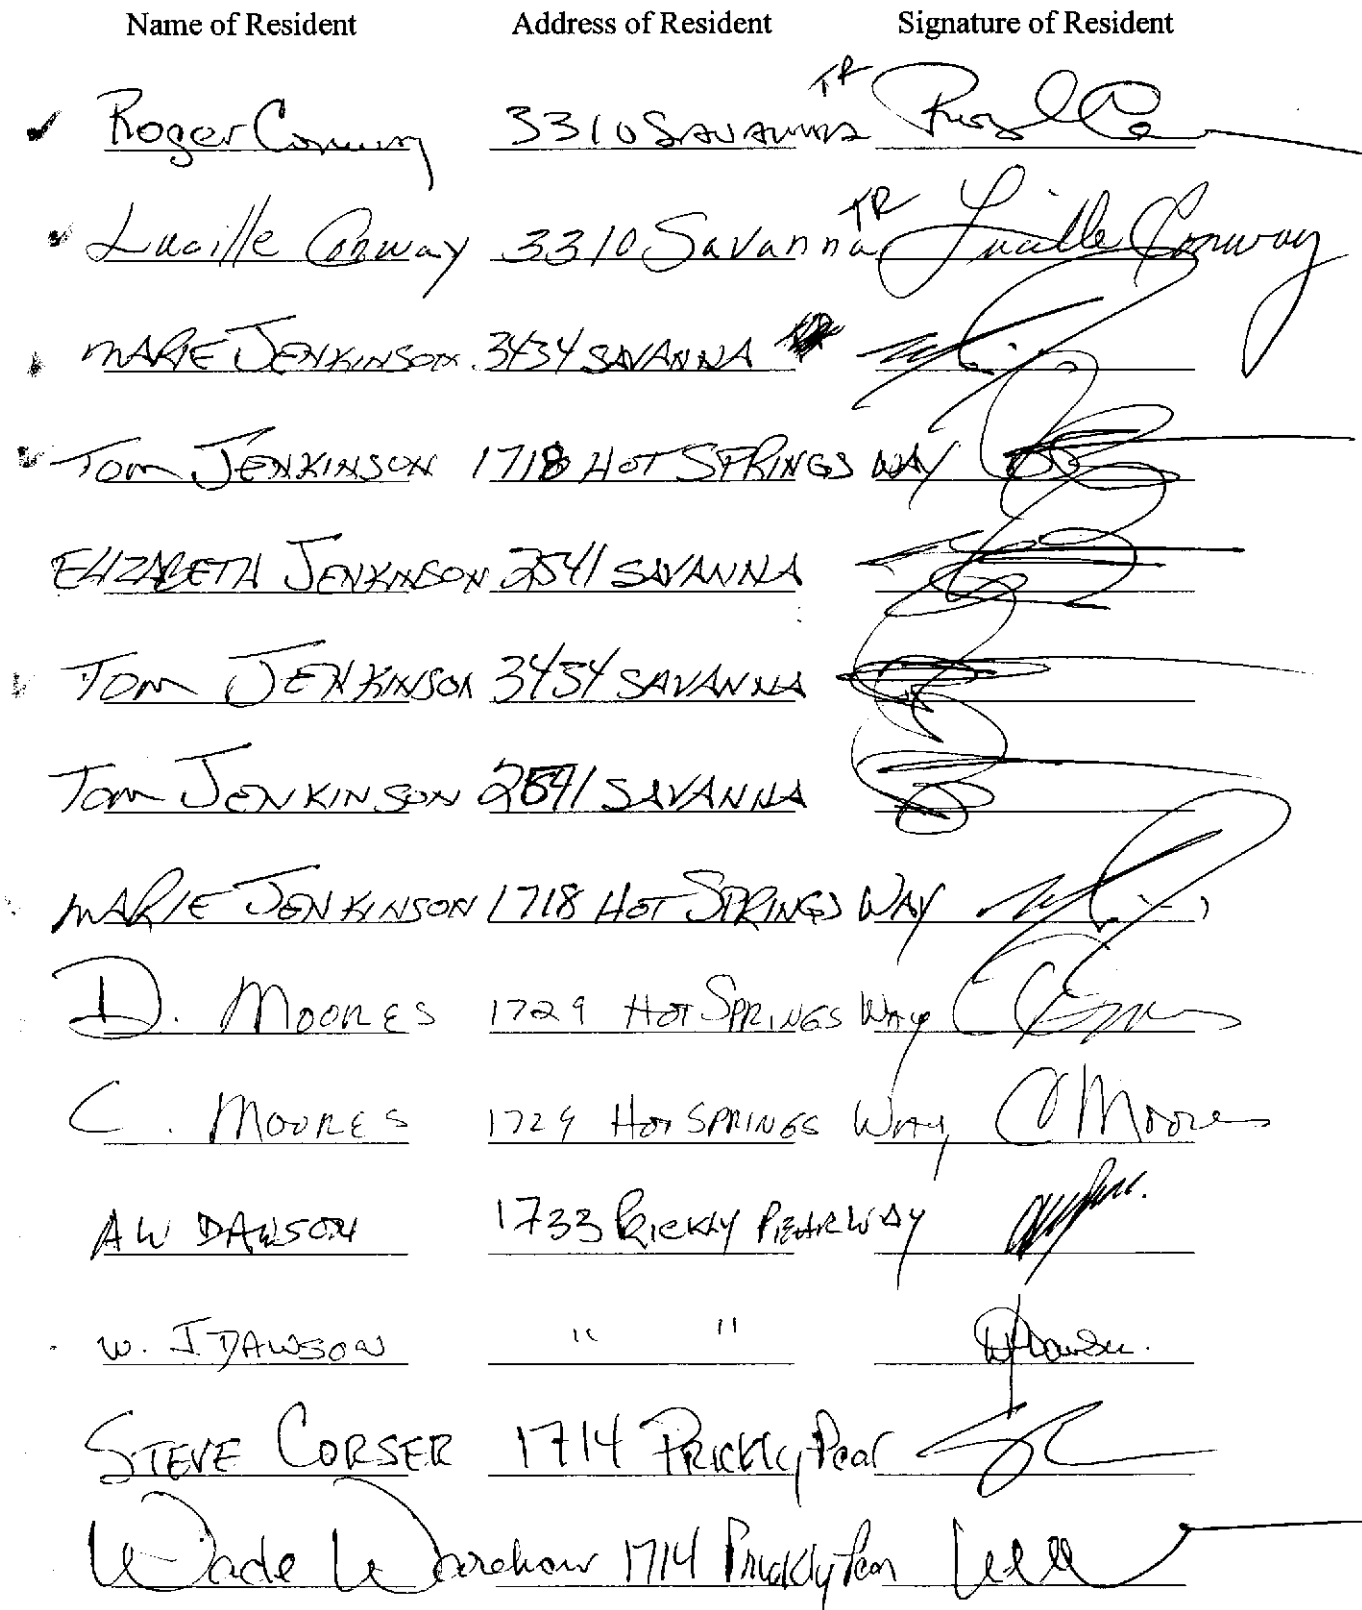 Name of Resident Address of Resident Signature of Resident
Roger Conway 3310 Savanna TR
Lucille Conway 3310 Savanna TR Lucille Conway
MARIE JENKINSON 3434 SAVANNA
TOM JENKINSON 1718 HOT SPRINGS WAY
ELIZABETH JENKINSON 2541 SAVANNA
TOM JENKINSON 3454 SAVANNA
TOM JENKINSON 2541 SAVANNA
MARIE JENKINSON 1718 HOT SPRINGS WAY
D. MOORES 1729 HOT SPRINGS WAY
C. MOORES 1729 HOT SPRINGS WAY C Moores
AW DAWSON 1733 PRICKLY PEAR WAY
W. J. DAWSON " " WJDawson.
STEVE CORSER 1714 Prickly Pear
Wade 1714 Prickly Pear